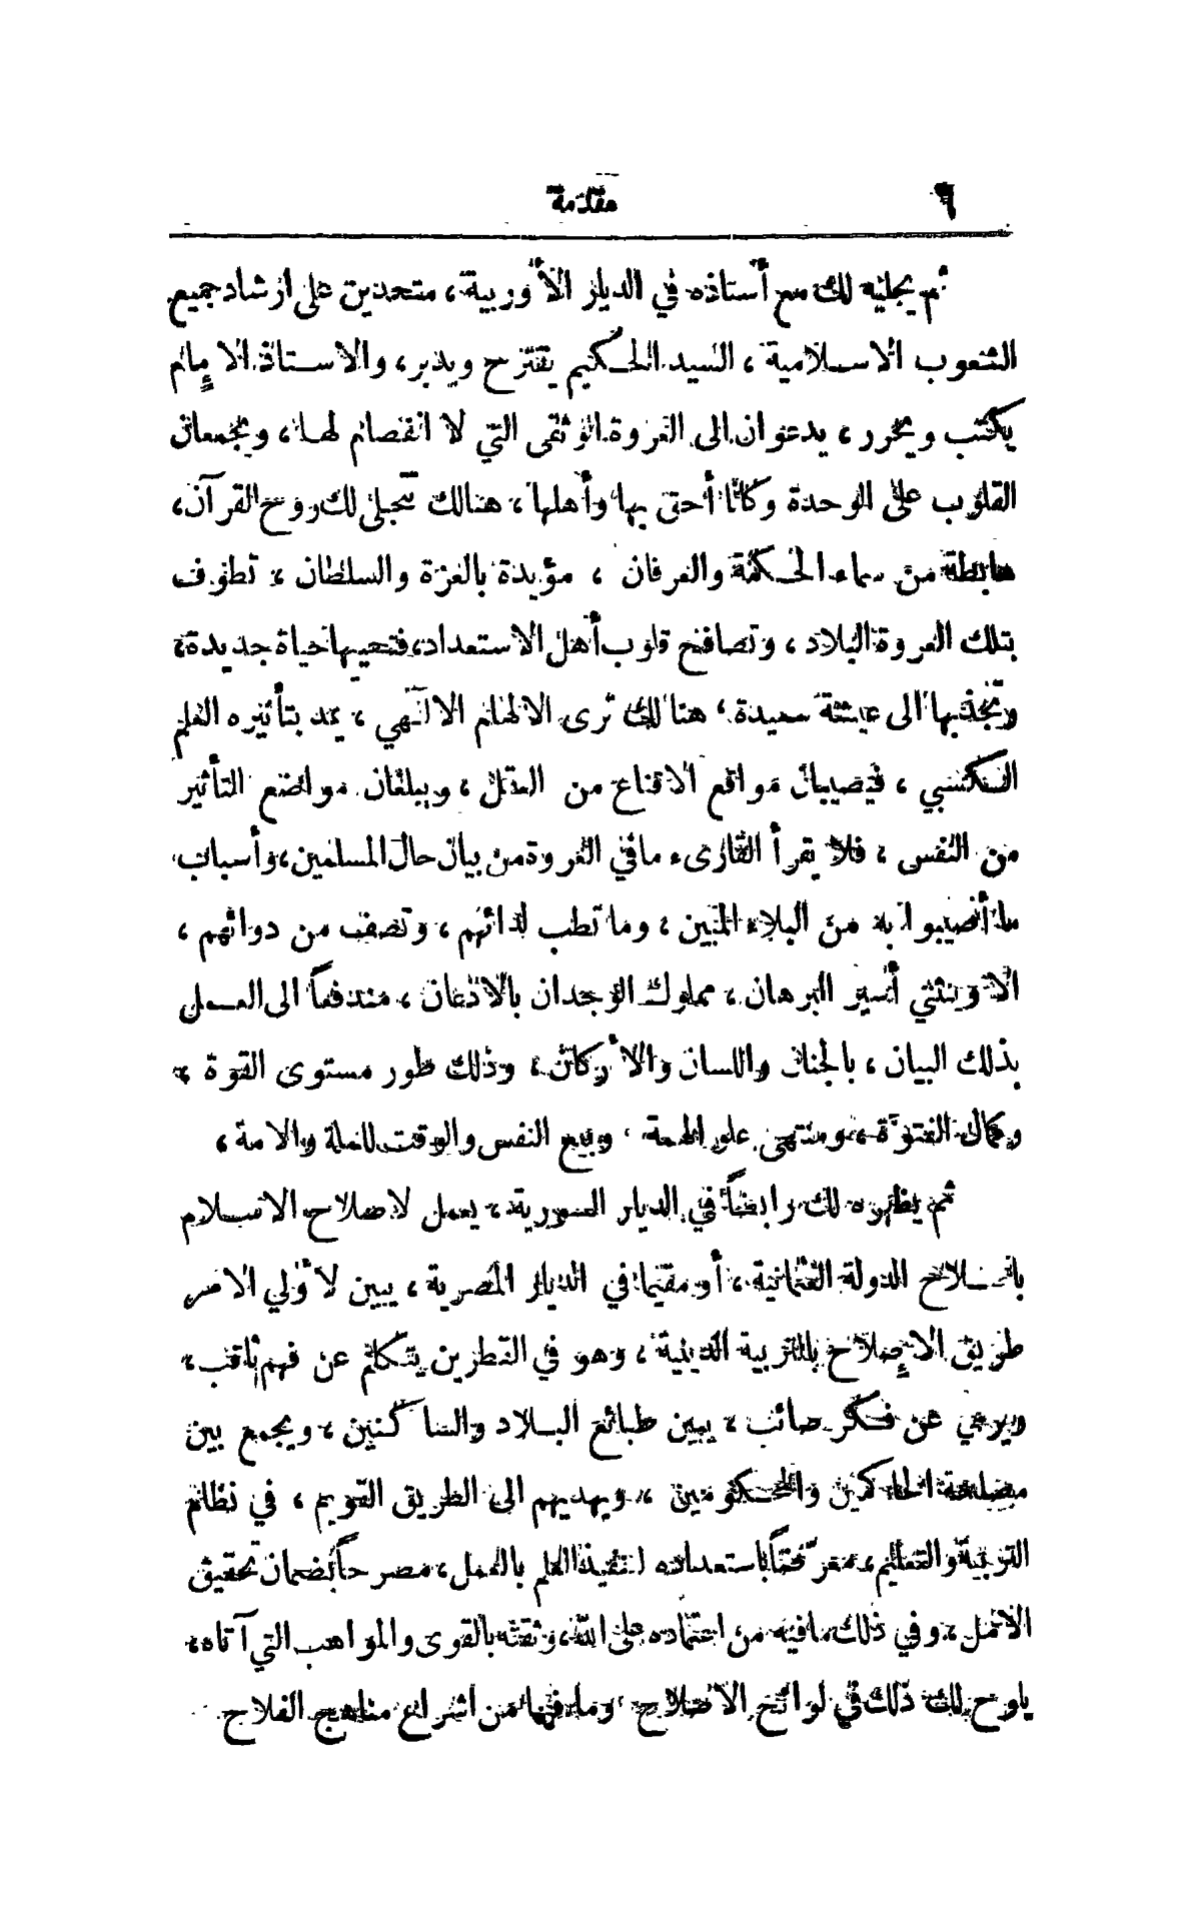 ٦
مقدمة
ثم يجليه لك مع أستاذه في الديار الأوربية ، متحدين على ارشاد جميع
الشعوب الاسلامية ، السيد الحكيم يقترح ويدبر ، والاستاذ الامِام
يكتب ويحرر ، يدعوان الى العروة الوثقى التي لا انفصام لها ، ويجمعان
القلوب على الوحدة وكانا أحق بها وأهلها ، هنالك تتجلى لك روح القرآن ،
هابطة من سماء الحكمة والعرفان ، مؤيدة بالعزة والسلطان ، تطوف
بتلك العروة البلاد ، وتصافح قلوب أهل الاستعداد ، فتحييها حياة جديدة ،
وتجذبها الى عيشة سعيدة ، هنالك ترى الالهام الالهي ، يمد بتأثيره العلم
الكسبي ، فيصيبان مواقع الاقناع من العقل ، ويبلغان مواضع التأثير
من النفس ، فلا يقرأ القارىء مافي العروة من بيان حال المسلمين ، وأسباب
ما أصيبوا به من البلاء المبين ، وما تطب لدائهم ، وتصف من دوائهم ،
الا وينثني أسير البرهان ، مملوك الوجدان بالاذعان ، مندفعاً الى العمل
بذلك البيان ، بالجنان واللسان والأركان ، وذلك طور مستوى القوة ،
وكمال الفتوّة ، ومنتهى علو الهمة ، وبيع النفس والوقت للملة والامة ،
ثم يظهره لك رابضاً في الديار السورية ، يعمل لاصلاح الاسلام
باصلاح الدولة العثمانية ، أو مقيما في الديار المصرية ، يبين لأولي الامر
طريق الاِصلاح بالتربية الدينية ، وهو في القطرين يتكلم عن فهم ثاقب ،
ويرمي عن فكر صائب ، يبين طبائع البلاد والساكنين ، ويجمع بين
مصلحة الحاكمين والمحكومين ، ويهديهم الى الطريق القويم ، في نظام
التربية والتعليم ، معرّضاً باستعداده لتنفيذ العلم بالعمل ، مصرحاً بضمان تحقيق
الامل ، وفي ذلك مافيه من اعتماده على الله ، وثقته بالقوى والمواهب التي آتاه ،
يلوح لك ذلك في لوائح الاصلاح ، وما فيها من اشراع مناهج الفلاح